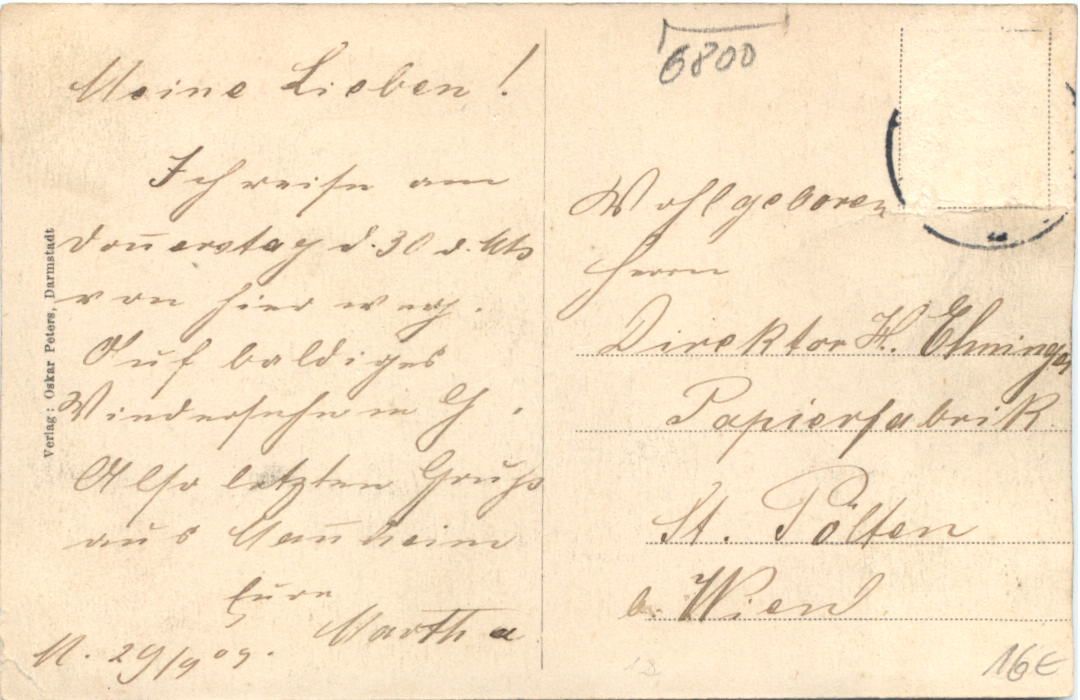 Meine Lieben!
Ich reise am
Donnerstag d. 30 d. Mts
von hier weg.
Auf baldiges
Wiedersehn
Also letzten Gruß
aus Mannheim
Eure
Martha
M. 29/9 09.
Verlag: Oskar Peters, Darmstadt
6800
Wohlgeboren
Herrn
Direktor H.
Papierfabrik
St. Pölten
b. Wien
16€